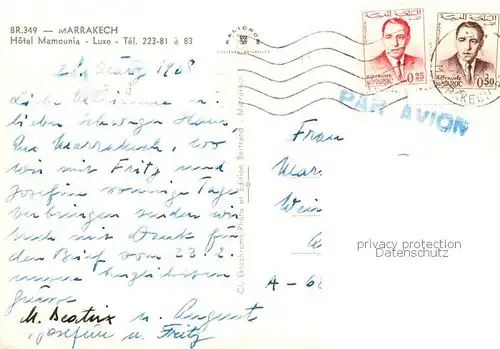 BR.349 — MARRAKECH
Hôtel Mamounia - Luxe - Tél. 223-81 à 83
PAR AVION
ROYAUME DU MAROC 0,25
ROYAUME DU MAROC 0,50
März 1968
Liebe
lieber Schwager Hans!
Aus Marrakech, wo
wir mit Fritz und
Josefine sonnige Tage
verbringen senden wir
Euch mit Dank für
den Brief vom 23.2.
unsere herzlichsten
Grüsse
M. Beatrix u. August
Josefine u. Fritz
Cl. Ektachrome-Photo et Edition Bertrand - Marrakech
Frau
Mar
Wein
A - 6
privacy protection
Datenschutz